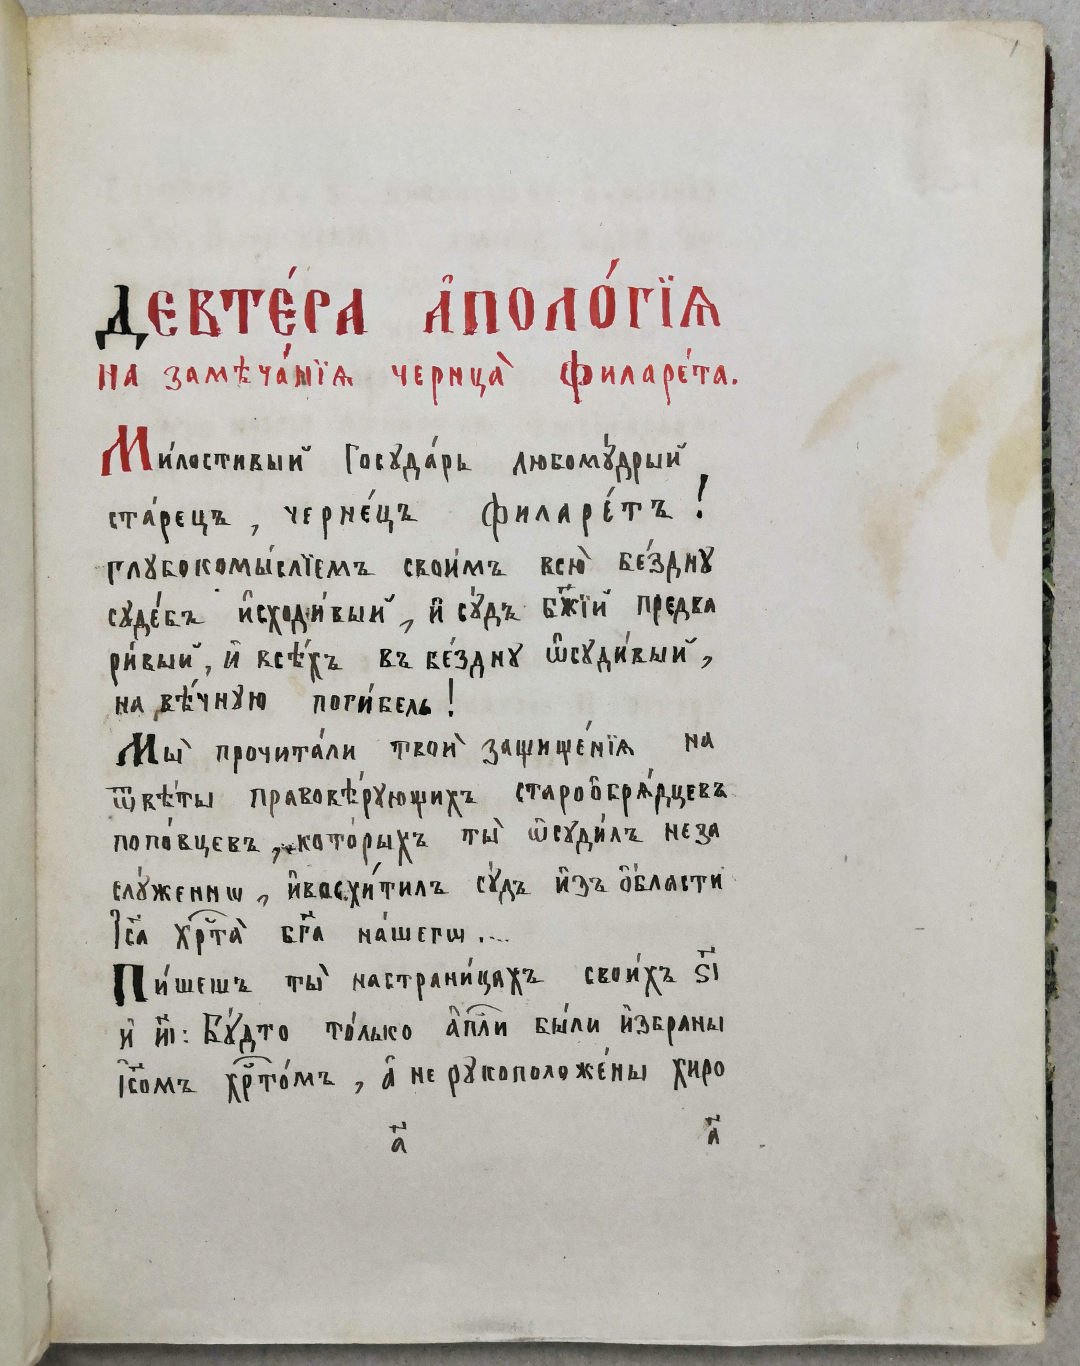 1
Девте́ра а҆поло́гїѧ
на замѣча́нїѧ чернца̀ филаре́та.
Ми́лостивый Госуда́рь любому́дрый
ста́рецъ, черне́цъ филаре́тъ!
глубокомы́слїемъ свои́мъ всю̀ бе́здну
суде́бъ и҆сходи́вый, и҆ су́дъ бж҃їй предва
ри́вый, и҆ всѣ́хъ въ бе́здну ѿсуди́вый,
на вѣ́чную поги́бель!
Мы̀ прочита́ли твои̇̀ защище́нїѧ на
ѿвѣ́ты правовѣ́рующихъ староо҆брѧ́дцевъ
попо́вцевъ, кото́рыхъ ты̀ ѡ҆суди́лъ неза
слу́женнѡ, и҆восхи́тилъ су́дъ и҆зъ о҆́бласти
І҆с҃а хрⷭ҇та̀ бг҃а на́шегѡ...
Пи́шешъ ты̀ настрани́цахъ свои́хъ ѕ҃і
и҆ и҃і: Бу́дто то́лько а҆пⷭ҇ли бы́ли и҆збраны
і҆с҃омъ хрⷭ҇то́мъ, а҆ не рукоположе́ны хиро
а҃ а҃